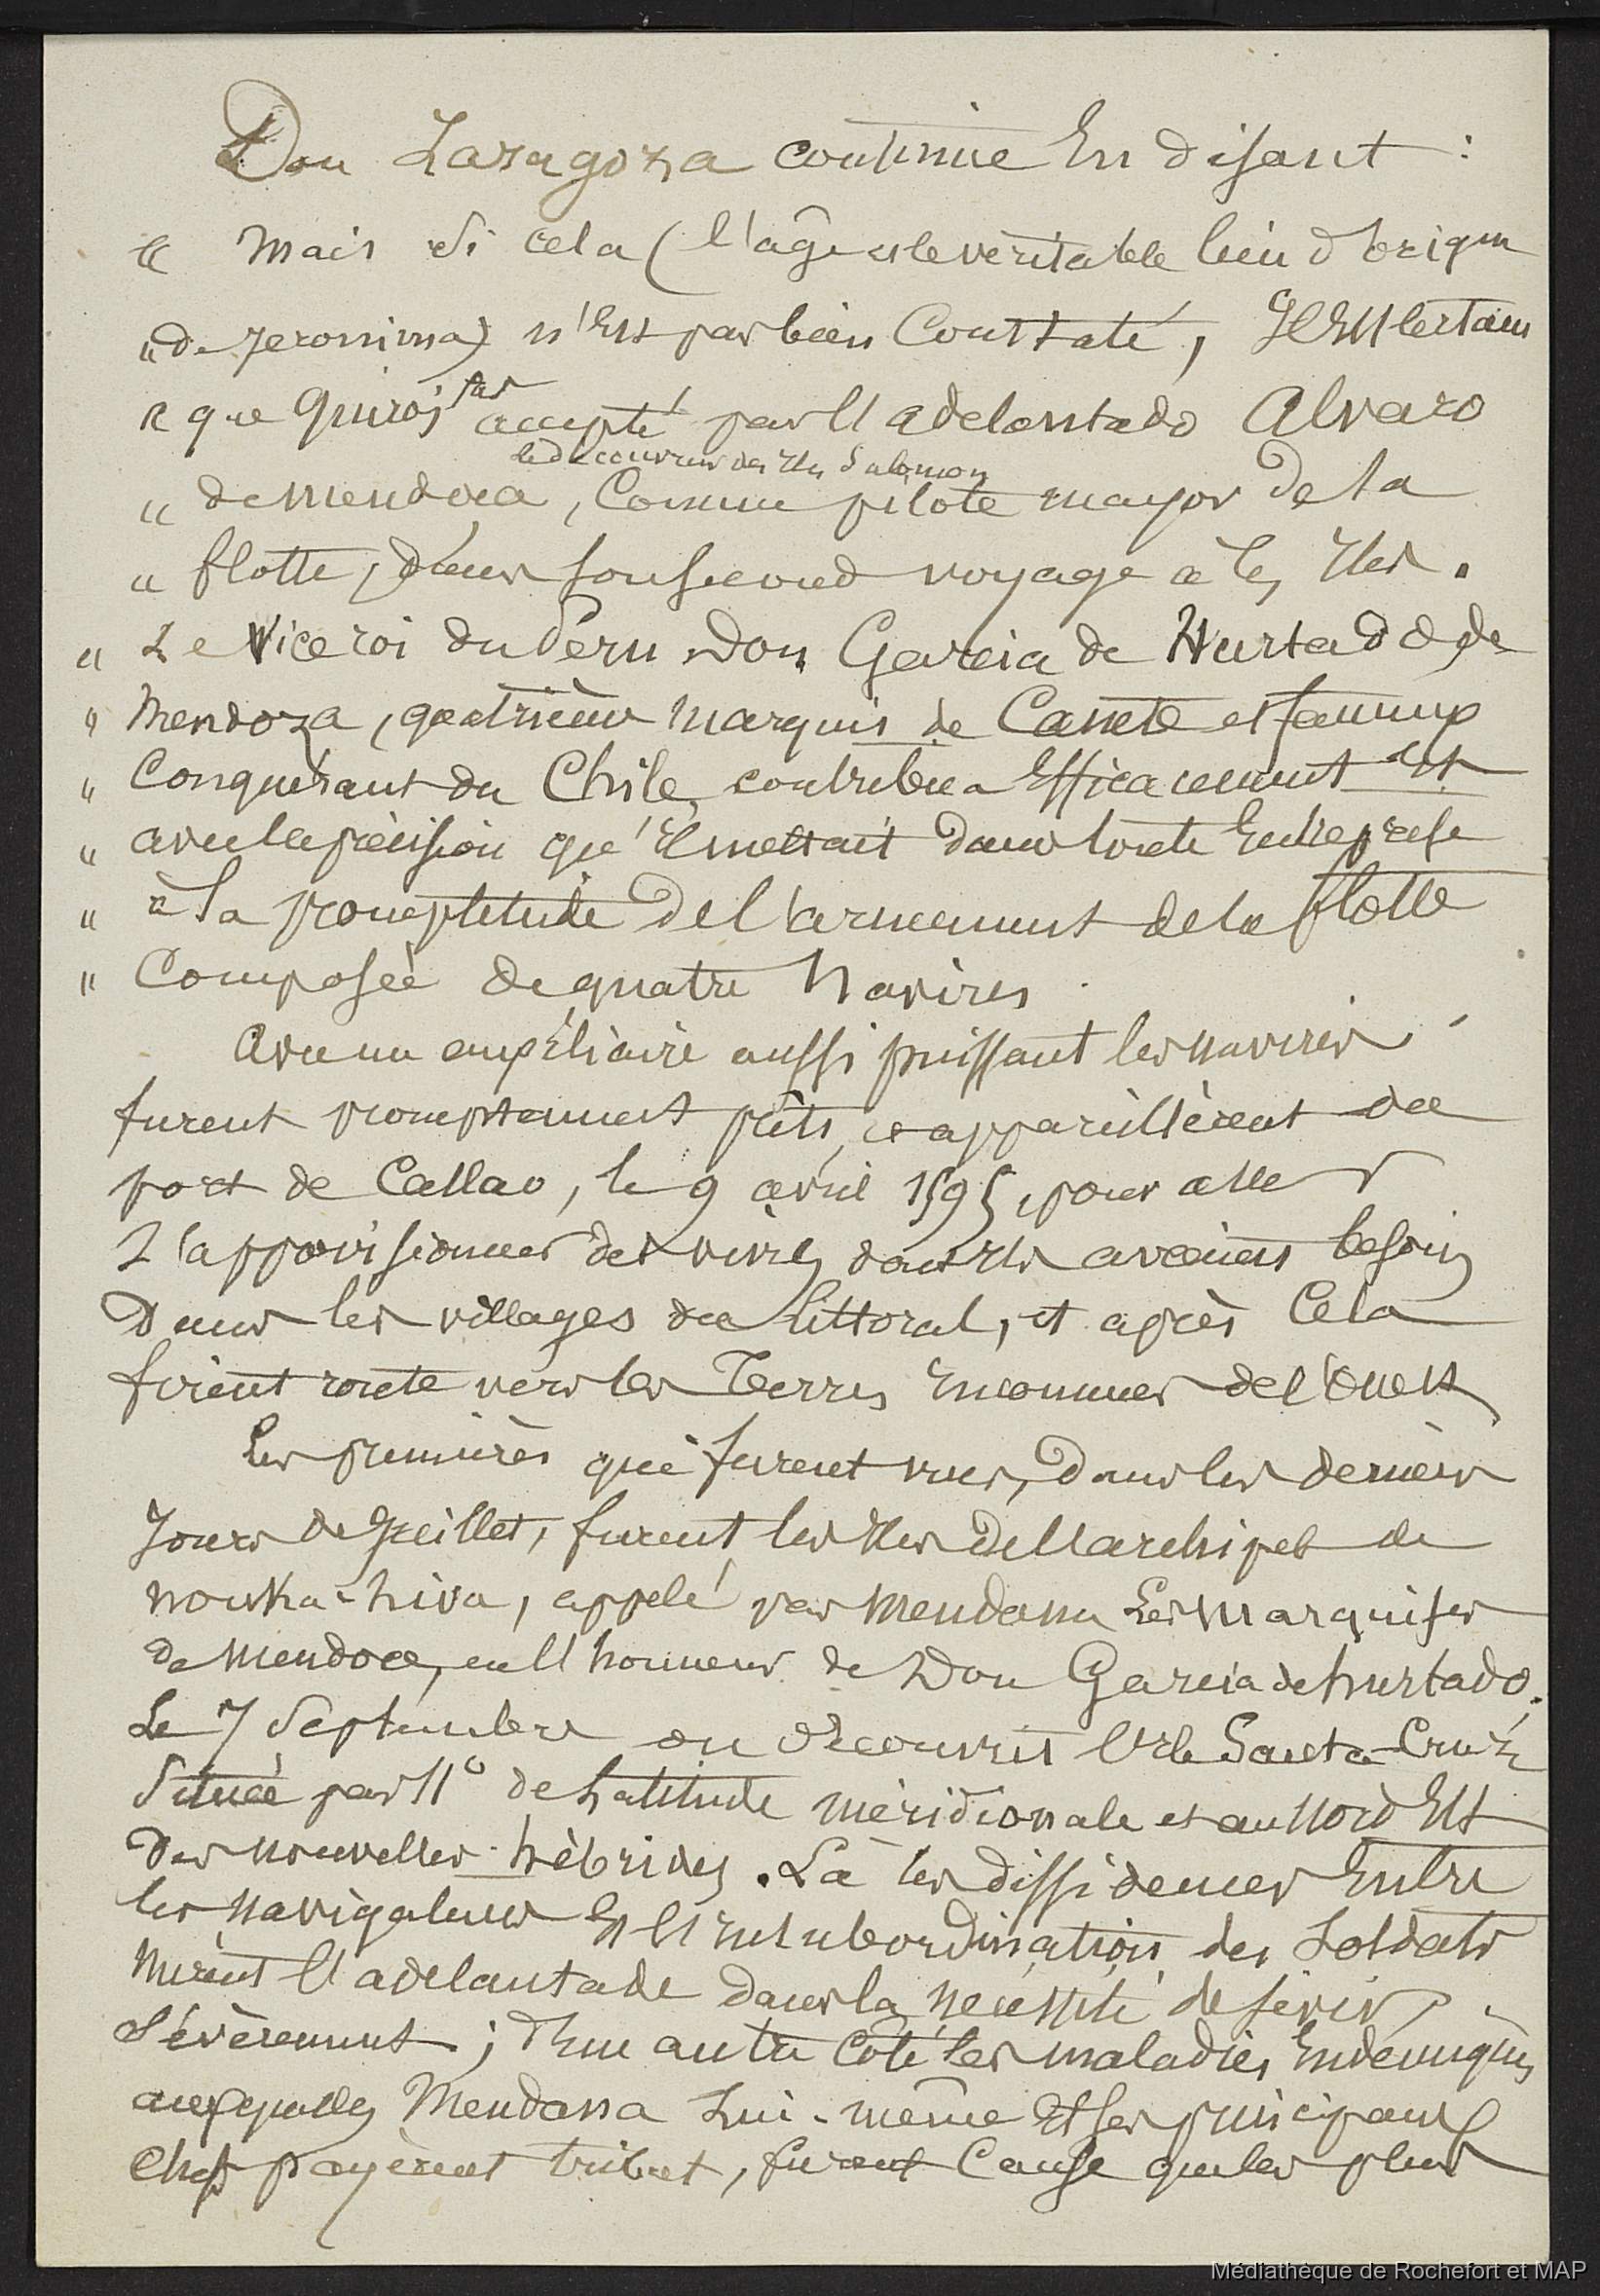 Don Zaragoza continue En disant :
" Mais si cela (l'âge et le véritable lieu d'origin
" de Jeronima) n'Est pas bien Constaté, Il Est certain
" que Quiros fut accepté par l'adelantado Alvaro
le découvreur des Iles Salomon
" de Mendoca, Comme pilote mayor de la
" flotte, dans son second voyage à ces Iles.
" Le Vice roi du Péru Don Garcia de Hurtado de
" Mendoza, quatrième Marquis de Canete et fameux
" Conquérant du Chile, contribua Efficacement Et
" avec la précision qu'Il mettait dans toute Entreprise
" à la promptitude de l'armement de la flotte
" Composée de quatre Navires.
Avec un auxiliaire aussi puissant les navires
furent promptement prêts, et appareillèrent du
port de Callao, le 9 avril 1595, pour aller
S'approvisionner des vivres dont Ils avaient besoin
Dans les villages du littoral, et après Cela
firent route vers les Terres Inconnues de l'Ouest
Les premières qui furent vues, Dans les derniers
Jours de Juillet, furent les Iles de l'archipel de
Nouka-hiva, appelé par Mendana Les Marquises
de Mendoce, en l'honneur de Don Garcia de hurtado.
Le 7 Septembre on découvrit l'Ile Santa-Cruz
Située par 11° de Latitude méridionale et au Nord Est
Des Nouvelles-hébrides. Là les dissidences Entre
les Navigateurs Et l'Insubordination des Soldats
mirent l'adelantade dans la nécessité de sévir
Sévèrement ; d'Une autre Côté les maladies Endémiques
auxquelles Mendana Lui-même Et ses principaux
Chefs payèrent tribut, furent Cause que les plus
Médiathèque de Rochefort et MAP